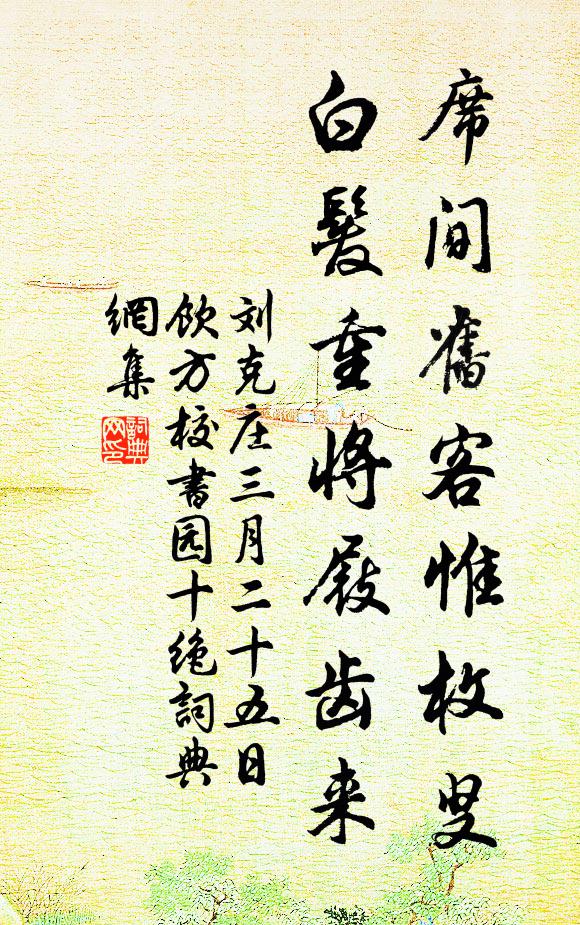 席间旧客惟枚叟
白髮重将屐齿来
刘克庄三月二十五日
饮方校书园十绝詞典
網集
詞典
网印